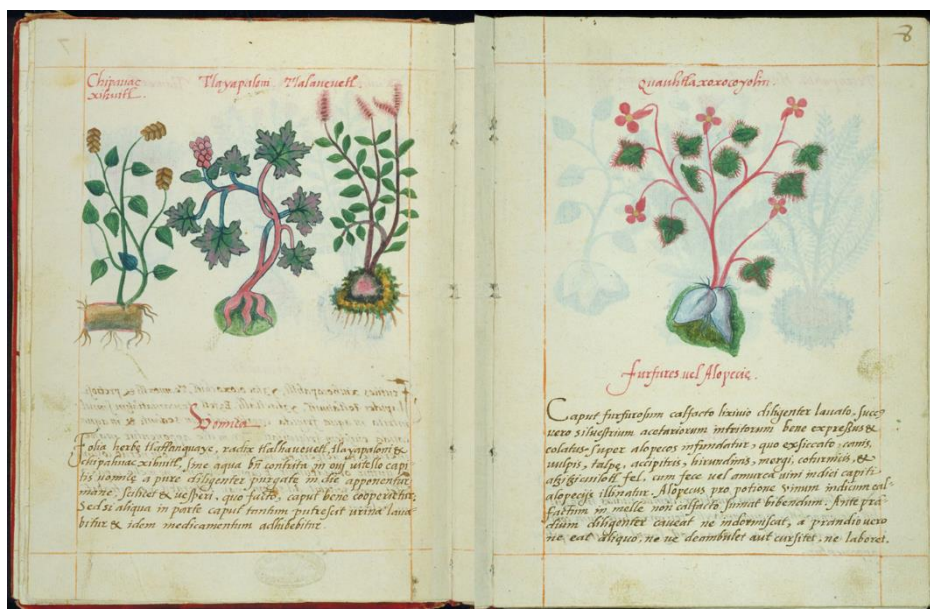 7
Chipauac
xihuitl.
Tlayapaloni
Tlalaneuetl.
Vomica
Folia herbę tlatlanquaye, radix tlalhauehuetl, tlayapaloni &
chipahuac xihuitl, sine aqua bñ contrita in oui uitello capi
tis vomicę a pure diligenter purgatę in die apponentur
mane, scilicet & uesperi, quo facto, caput bene cooperietur,
Sed si aliqua in parte caput tantum putrescat urina laua
bitur & idem medicamentum adhibebitur.
8
Quauhtla xoxocoyolin.
furfures vel Alopecię.
Caput furfurosum calfacto lixiuio diligenter lauato. succꝰ
vero siluestrium acetariorum intritorum bene expreßus &
colatus super alopecos infundatur, quo exsiccato, canis,
vulpis, talpę, accipitris, hirundinis, mergi, coturnicis, &
fel, cum fece vel amurca vini indici capiti
alopecijs illinatur. Alopecus pro potione vinum indicum cal-
factum in melle non calfacto sumat bibendum. Ante pra
dium diligenter caueat ne indormiscat, a prandio uero
ne eat aliquo, ne ue deambulet aut cursitet, ne laboret.